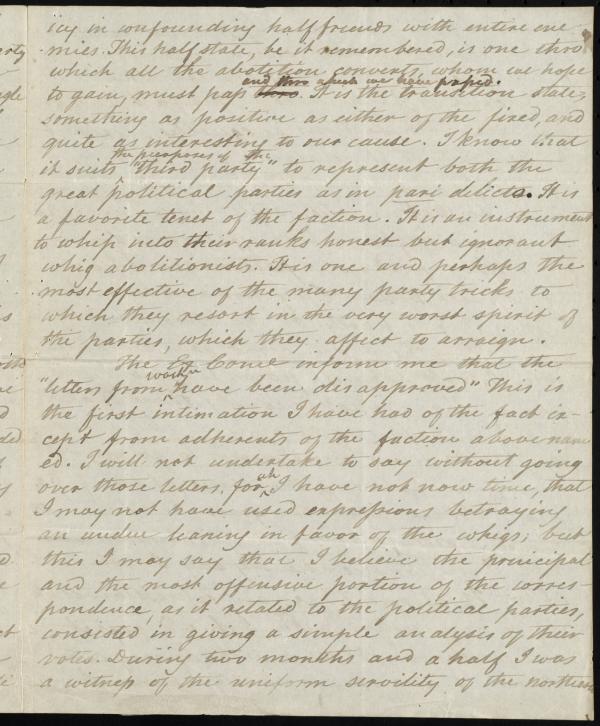 icy in confounding half friends with entire ene-
mies. This half state, be it remembered, is one thro
which all the abolition converts, whom we hope
and thro which we have passed.
to gain, must pass thro. It is the transition state;
something as positive as either of the fixed, and
quite as interesting to our cause. I know that
the purposes of the
it suits "third party" to represent both the
great political parties as in pari delicto. It is
a favorite tenet of the faction. It is an instrument
to whip into their ranks honest but ignorant
whig abolitionists. It is one and perhaps the
most effective of the many party tricks to
which they resort in the very worst spirit of
the parties, which they affect to arraign.
The Ex Come inform me that the
"letters from have been disapproved" This is
the first intimation I have had of the fact ex-
cept from adherents of the faction above nam
ed. I will not undertake to say without going
over those letters, for I have not now time, that
I may not have used expressions betraying
an undue leaning in favor of the whigs; but
this I may say that I believe the principal
and the most offensive portion of the corres-
pondence, as it related to the political parties,
consisted in giving a simple analysis of their
votes. During two months and a half I was
a witness of the uniform servility of the northern